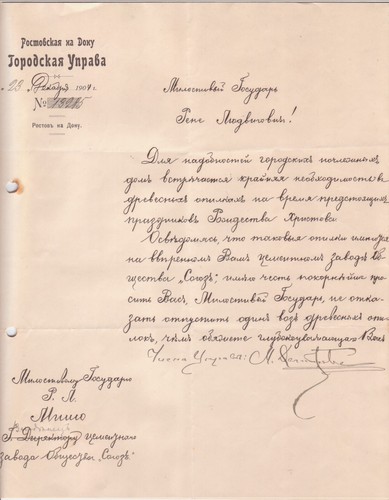 Ростовская на Дону
Городская Управа
23 Декабря 1904 г.
№
Ростов на Дону.
Милостивый Государь
Рене Людвигович!
Для надобностей городских ночлежных
дом встречается крайняя необходимость въ
древесныхъ опилкахъ на время предстоящихъ
праздниковъ Рождества Христова
Освѣдомясь, что таковыя опилки имеются
на ввѣренномъ Вамъ цементномъ заводѣ Об
щества "Союзъ", имѣю честь покорнѣйше про
сить Васъ, Милостивый Государь, не отка
зать отпустить одинъ возъ древесныхъ опи
локъ, чѣмъ обяжете глубокоуважающаго Васъ
Члена Управы:
Милостивому Государю
Р. Л.
Мишо
Г. Директору цементнаго
завода Общества "Союзъ"